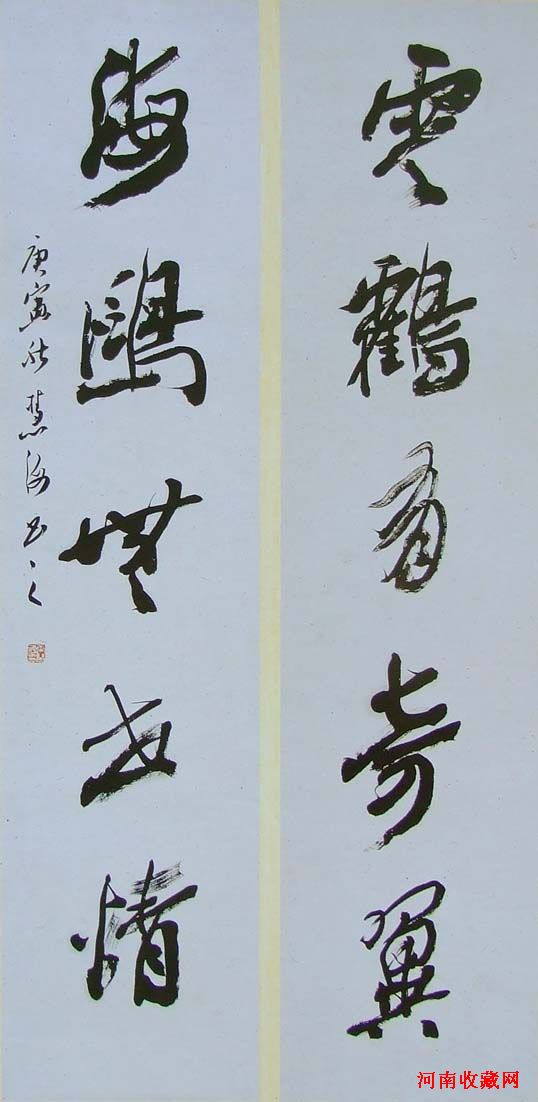 雲鶴有奇翼
海鷗無世情
庚寅秋慧海书之
河南收藏网